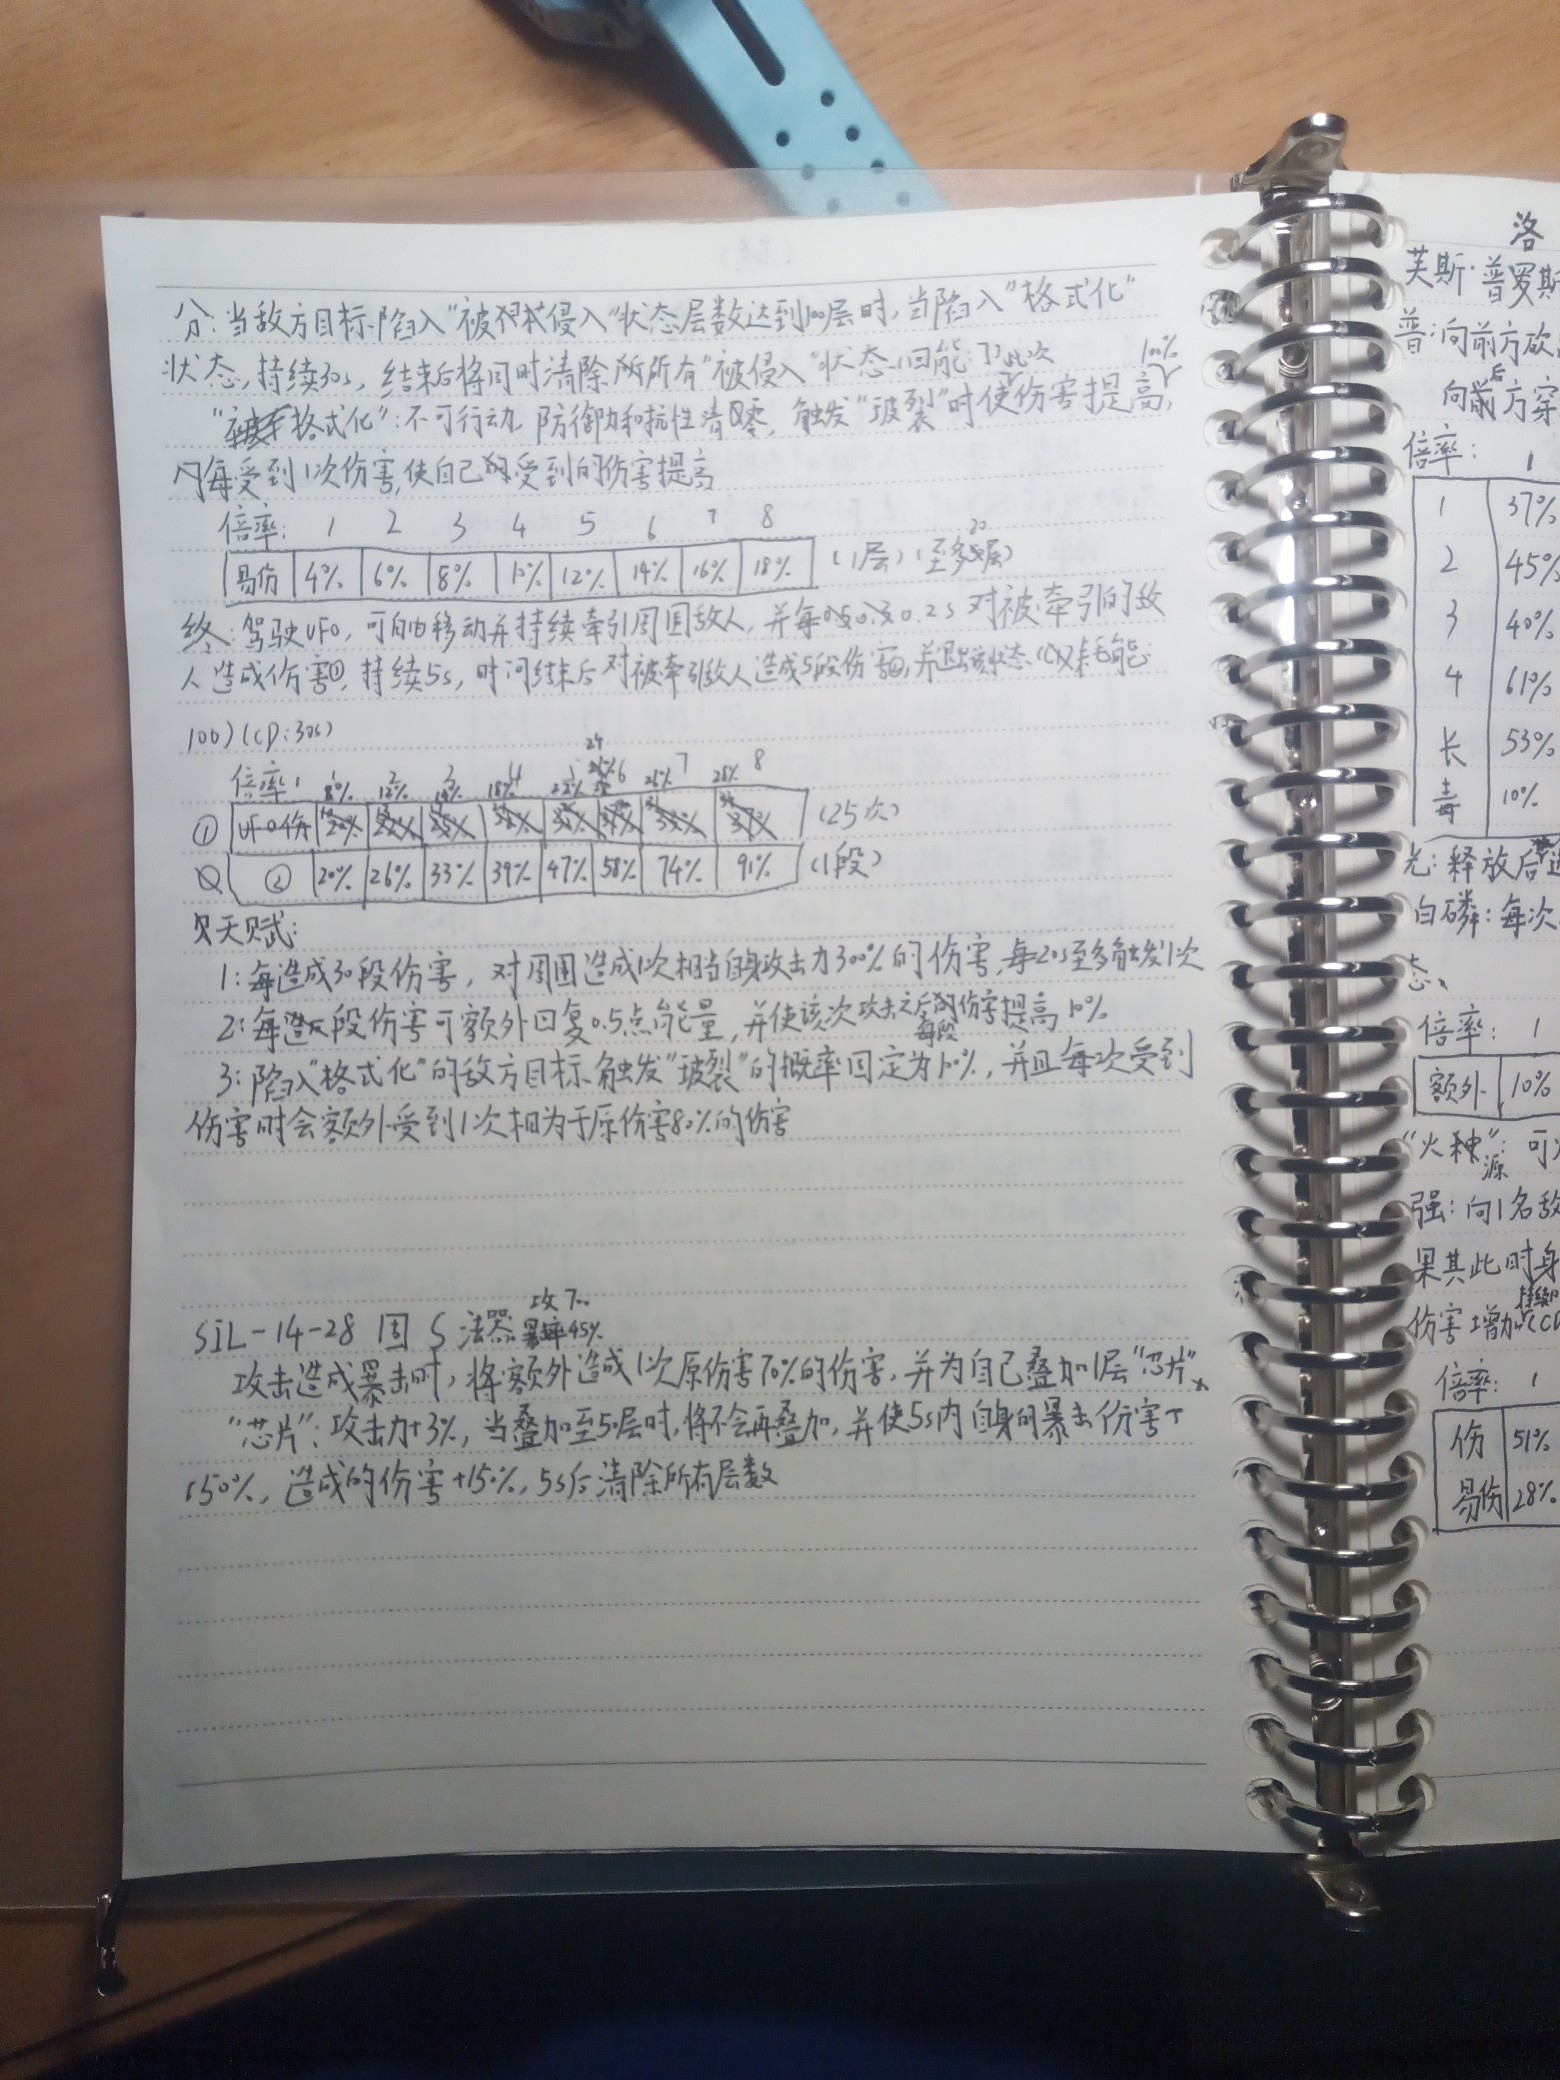 分:当敌方目标陷入"被侵入"状态层数达到100层时,当陷入"格式化"
状态,持续30s,结束后将同时清除所有"被侵入"状态(回能:7)
"格式化":不可行动,防御力和抗性清零,触发"玻裂"时使此次伤害提高100%,
内每受到1次伤害,使自己受到的伤害提高
倍率: 1 2 3 4 5 6 7 8
易伤 4% 6% 8% 10% 12% 14% 16% 18% (1层)(至多20层)
终:驾驶UFO,可自由移动并持续牵引周围敌人,并每0.2s对被牵引的敌
人造成伤害①,持续5s,时间结束后对被牵引敌人造成5段伤害②,并退出该状态(耗能:
100)(CD:30s)
倍率: 1 2 3 4 5 6 7 8
8% 12% 18% 22% 24% 26% 28%
① UFO伤 (25次)
② 20% 26% 33% 39% 47% 58% 74% 91% (1段)
天赋:
1:每造成30段伤害,对周围造成1次相当自身攻击力300%的伤害,每20s至多触发1次
2:每造成段伤害可额外回复0.5点能量,并使该次攻击之后每段伤害提高10%
3:陷入"格式化"的敌方目标触发"玻裂"的概率固定为10%,并且每次受到
伤害时会额外受到1次相当于原伤害80%的伤害
SiL-14-28 周 S 法器 攻700 暴率45%
攻击造成暴击时,将额外造成1次原伤害70%的伤害,并为自己叠加1层"芯片"
"芯片":攻击力+3%,当叠加至50层时,将不会再叠加,并使5s内自身的暴击伤害+
150%,造成的伤害+150%,5s后清除所有层数
洛
芙斯·普罗斯
普:向前方砍
向后方穿
倍率: 1
1 37%
2 45%
3 40%
4 61%
长 53%
毒 10%
光:释放后
白磷:每次
态
倍率: 1
额外 10%
"火种源":可
强:向1名敌
果其此时身
伤害增加
倍率: 1
伤 51%
易伤 28%